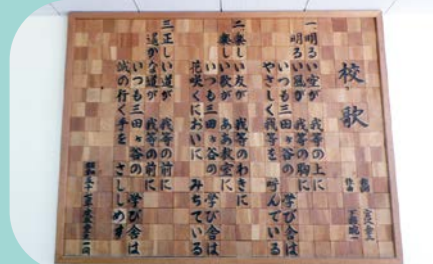 校歌
一 明るい空が 我等の上に
明るい風が 我等の胸に
いつも三田ヶ谷の 学び舎は
やさしく我等を 呼んでいる
二 楽しい友が 我等のわきに
楽しい歌が ああ教室に
いつも三田ヶ谷の 学び舎は
花咲くにおいに みちている
三 正しい道が 我等の前に
遥かな道が 我等の前に
いつも三田ヶ谷の 学び舎は
誠の行く手を さししめす